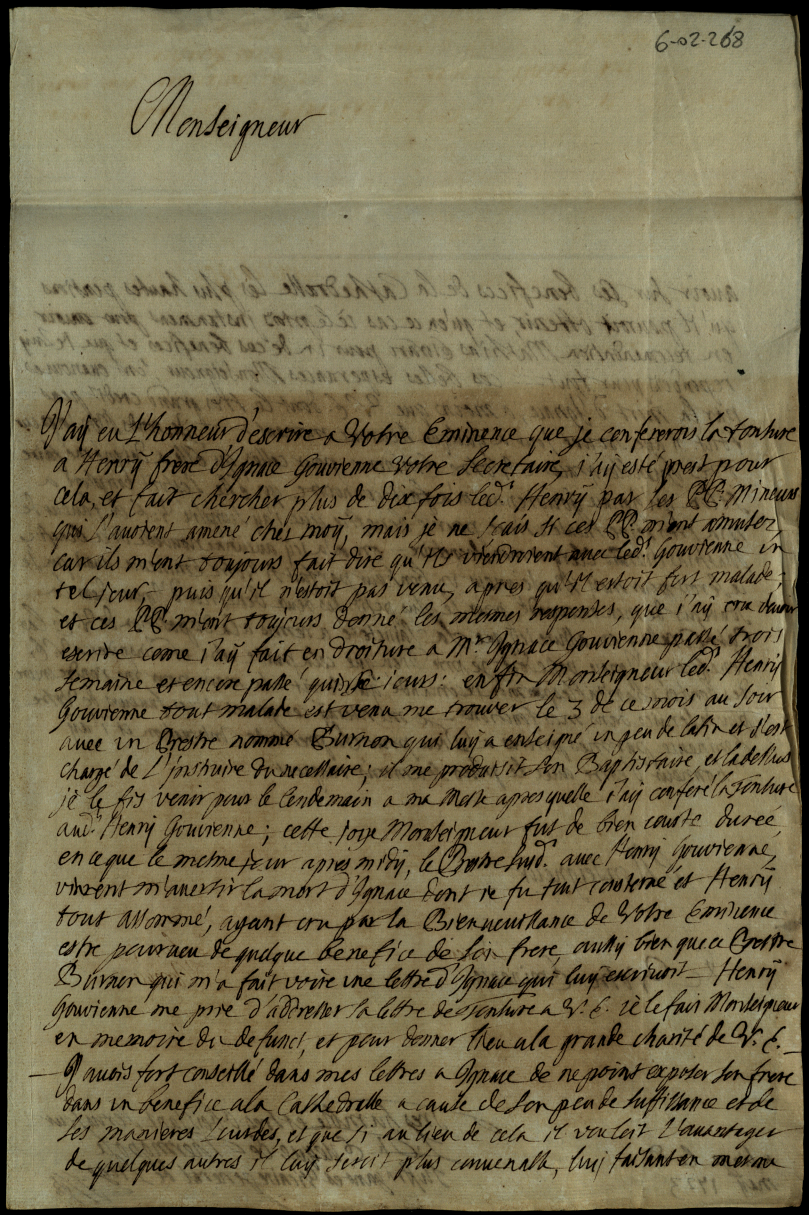 6-02-268
Monseigneur
J'aÿ eu L'honneur d'escrire a Votre Eminence que je confererois la tonture
a Henrÿ frere d'Ignace Gouvienne Votre Secretaire, j'aÿ esté prest pour
cela, et fait chercher plus de dix fois led.t Henrÿ par les PP. Mineurs
qui l'avoient amené chés moÿ, mais je ne scais si ces PP. m'ont amusez,
car ils m'ont toujours fait dire qu'ils viendroient avec led.t Gouvienne un
tel jour, puis qu'il n'estoit pas venu, apres qu'il estoit fort malade;
et ces PP. m'ont toujours donné les mesmes responses, que j'aÿ cru devoir
escrire come j'aÿ fait en droiture a M.r Ignace Gouvienne passé trois
semaine et encore passé quinse jours: enfin Monseigneur led.t Henrÿ
Gouvienne tout malade est venu me trouver le 3 de ce mois au soir
avec un Prestre nommé Burnon qui luÿ a enseigné un peu de latin et s'est
chargé de L'jnstruire du necessaire; il me produisit son Baptistaire, et la dessus
je le fis venir pour le Lendemain a ma Messe apres quelle j'aÿ conferé la Tonture
aud.t Henrÿ Gouvienne; cette joye Monseigneur fut de bien courte durée,
en ce que le mesme jour aprés midÿ, le Prestre sud.t avec Henrÿ Gouvienne,
vinrent m'avertir la mort d'Ignace dont je fu tout consterné et Henrÿ
tout assommé, ayant cru par la Bienveuillance de Votre Eminence
estre pourveu de quelque benefice de son frere, aussÿ bien que ce Prestre
Burnon qui m'a fait voire une lettre d'Ignace qui luy escrivoit — Henrÿ
Gouvienne me prie d'addresser sa lettre de Tonture a V. E. je le fais Monseigneur
en memoire du defunct, et pour donner lieu a la grande charité de V. E. —
— J'avois fort conseillé dans mes lettres a Ignace de ne point exposer son frere
dans un benefice a la Cathedralle a cause de son peu de suffissance et de
ses manieres Lourdes, et que si au lieu de cela il vouloit L'avantager
de quelques autres il luÿ seroit plus convenable, luÿ faisant en mesme